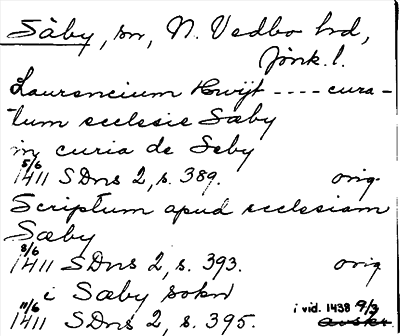 Säby, sn, N. Vedbo hd,
Jönk. l.
Laurencium Hwijt ---- cura-
tum ecclesie Sæby
in curia de Seby
5/6 1411 SDns 2, s. 389. orig
Scriptum apud ecclesiam
Sæby
8/6 1411 SDns 2, s. 393. orig
i Sæby sokn
11/6 1411 SDns 2, s. 395. i vid. 1438 9/3 avskr